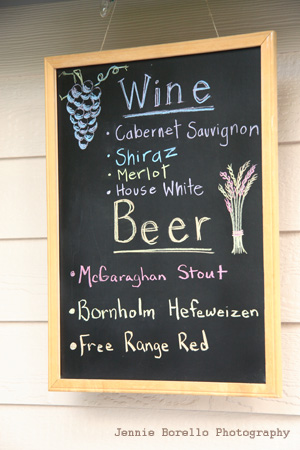 Wine
• Cabernet Sauvignon
• Shiraz
• Merlot
• House White
Beer
• McGaraghan Stout
• Bornholm Hefeweizen
• Free Range Red
Jennie Borello Photography